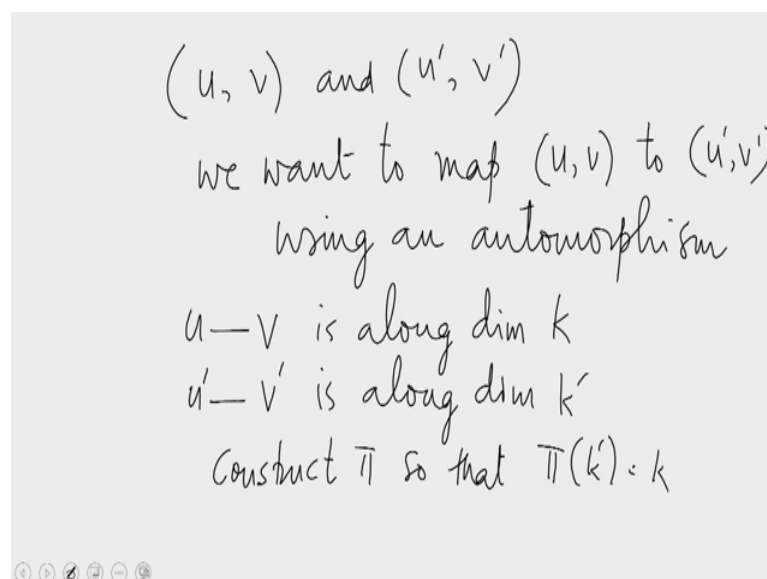 (u, v) and (u', v')
we want to map (u, v) to (u', v')
using an automorphism
u — v is along dim k
u' — v' is along dim k'
Construct π so that π(k') = k